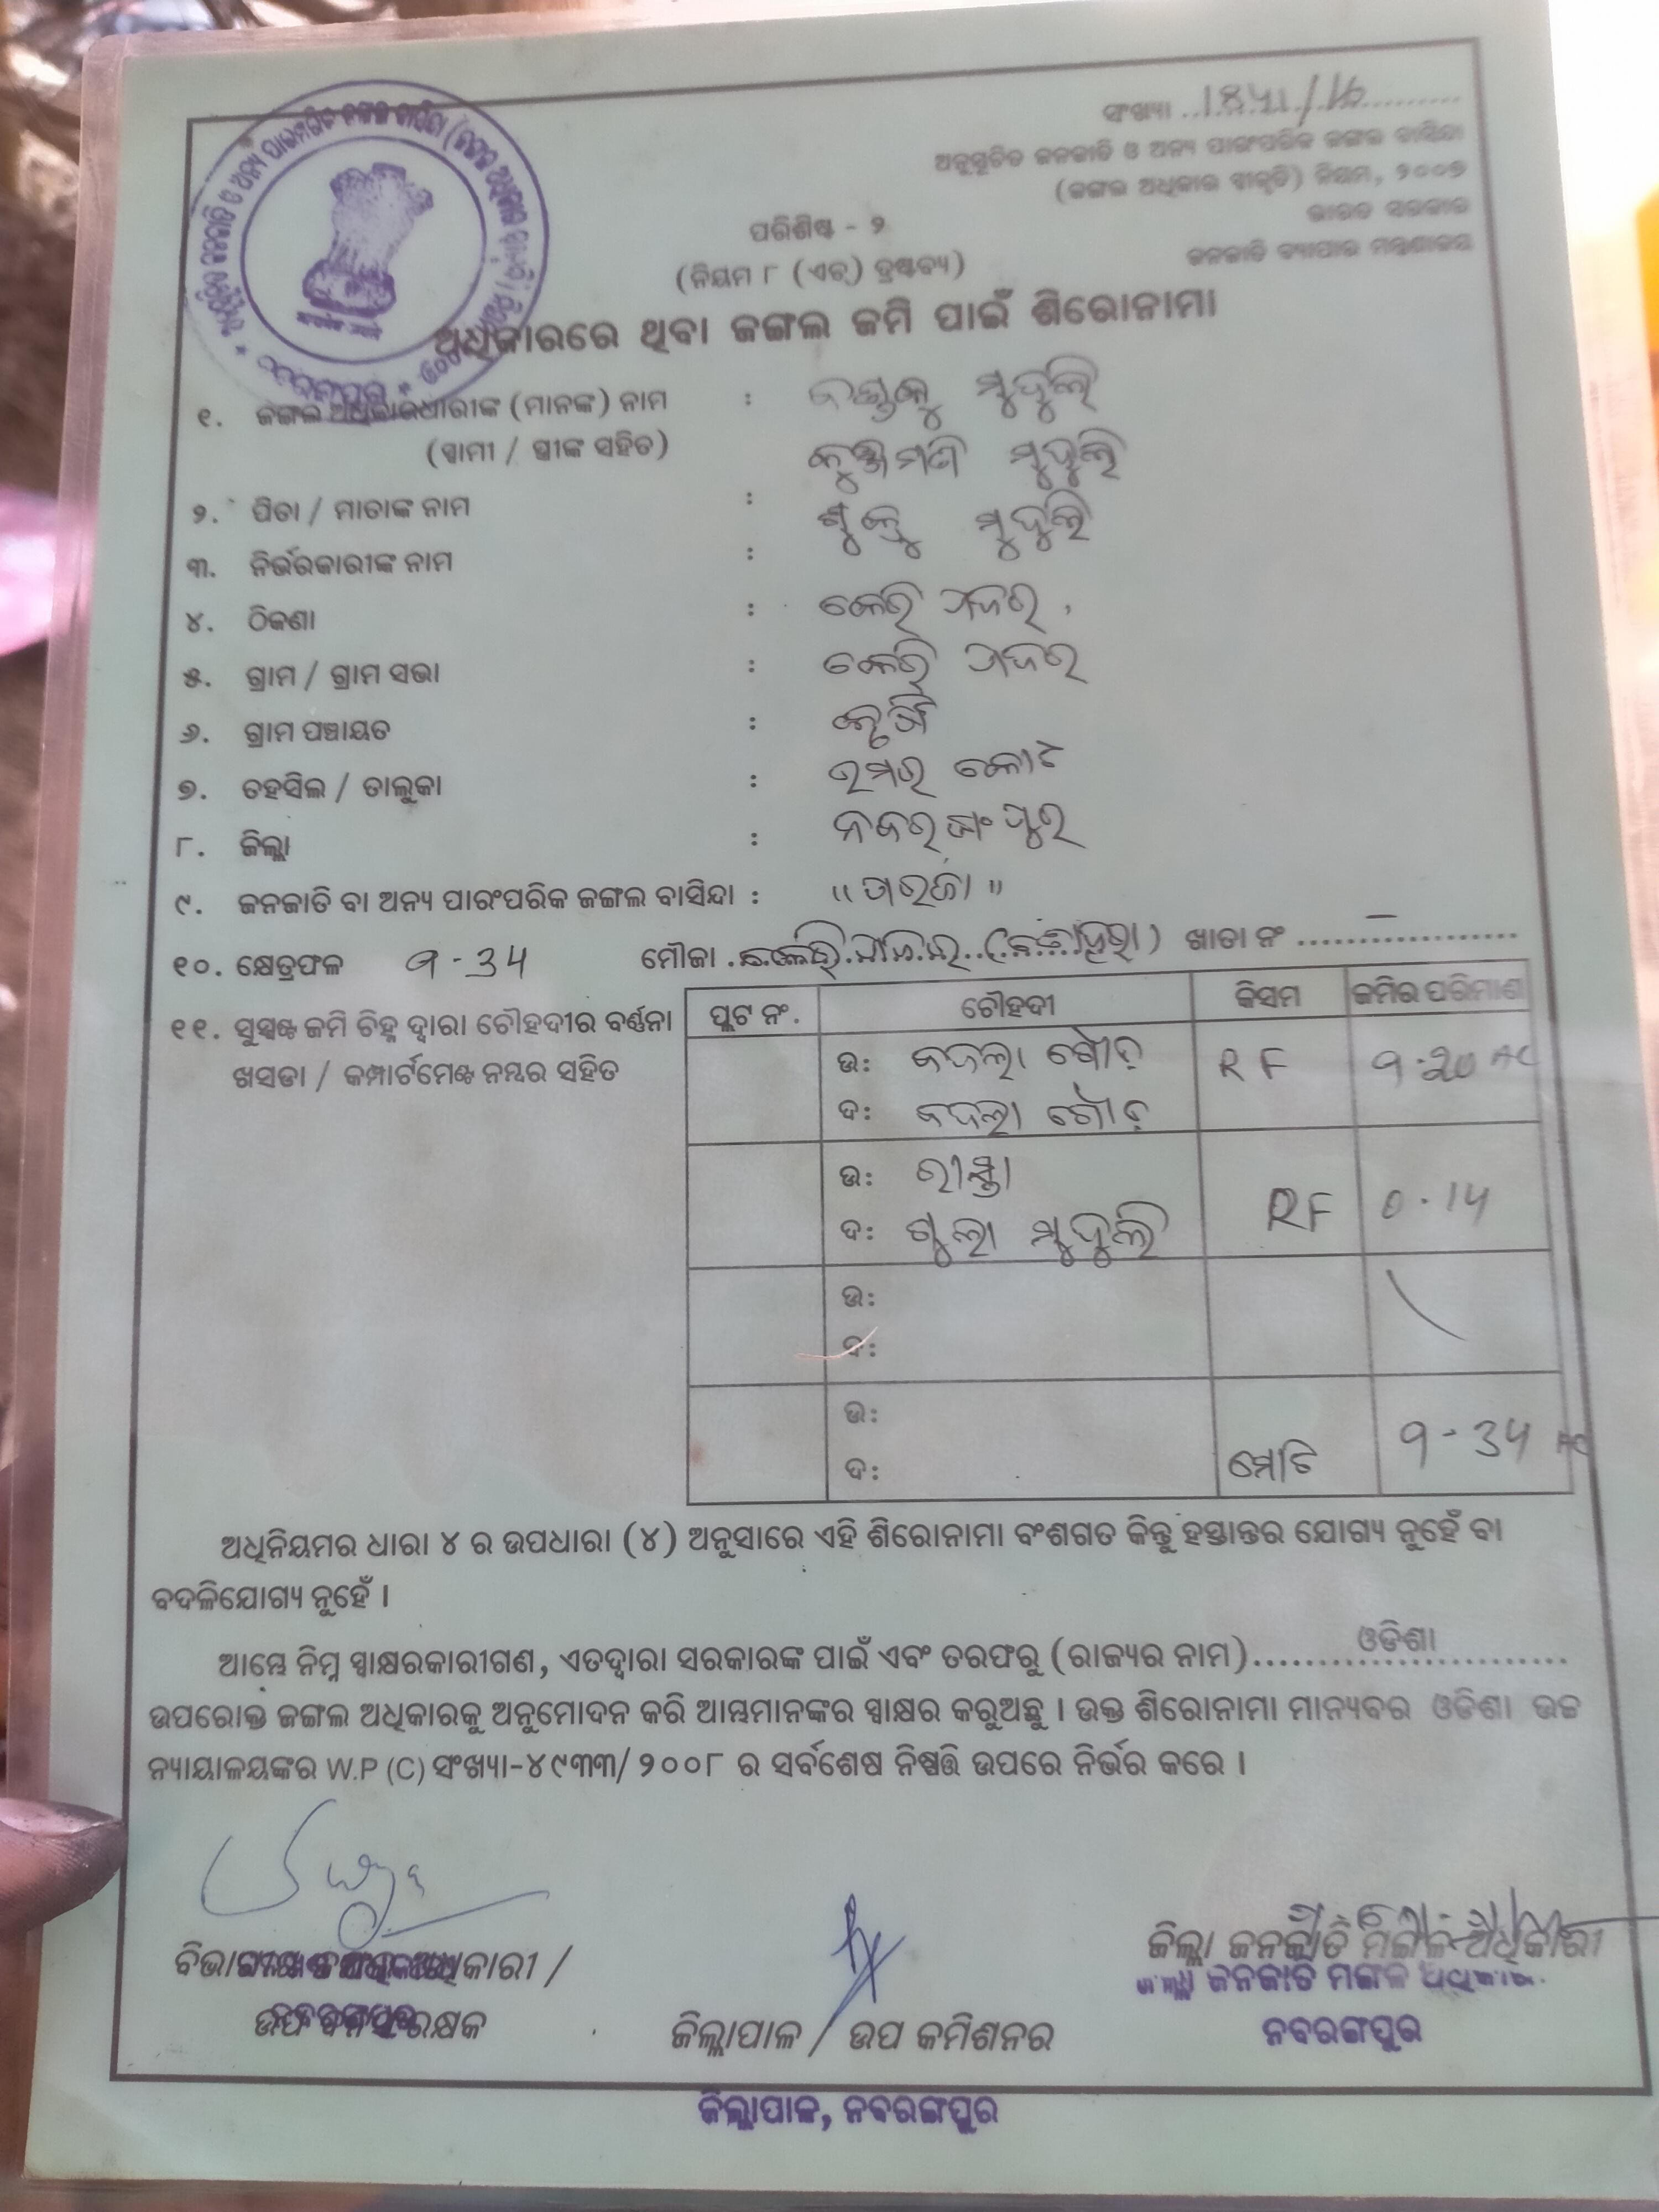 ସଂଖ୍ୟା
ଅନୁସୂଚିତ ଜନଜାତି ଓ ଅନ୍ୟ ପାରଂପରିକ ଜଙ୍ଗଲ ବାସିନ୍ଦା
(ଜଙ୍ଗଲ ଅଧିକାର ସ୍ୱୀକୃତି) ନିୟମ, ୨୦୦୭
ଭାରତ ସରକାର
ଜନଜାତି ବ୍ୟାପାର ମନ୍ତ୍ରଣାଳୟ
ପରିଶିଷ୍ଟ - ୨
(ନିୟମ ୮ (ଏଚ୍) ଦ୍ରଷ୍ଟବ୍ୟ)
ଅଧିକାରରେ ଥିବା ଜଙ୍ଗଲ ଜମି ପାଇଁ ଶିରୋନାମା
୧. ଜଙ୍ଗଲ ଅଧିକାରଧାରୀଙ୍କ (ମାନଙ୍କ) ନାମ : ମୁଦୁଲି
(ସ୍ୱାମୀ / ସ୍ତ୍ରୀଙ୍କ ସହିତ) ମୁଦୁଲି
୨. ପିତା / ମାତାଙ୍କ ନାମ : ମୁଦୁଲି
୩. ନିର୍ଭରକାରୀଙ୍କ ନାମ :
୪. ଠିକଣା :
୫. ଗ୍ରାମ / ଗ୍ରାମ ସଭା :
୬. ଗ୍ରାମ ପଞ୍ଚାୟତ :
୭. ତହସିଲ / ତାଲୁକା : ଉମରକୋଟ
୮. ଜିଲ୍ଲା : ନବରଙ୍ଗପୁର
୯. ଜନଜାତି ବା ଅନ୍ୟ ପାରଂପରିକ ଜଙ୍ଗଲ ବାସିନ୍ଦା : "ପରଜା"
୧୦. କ୍ଷେତ୍ରଫଳ ୧-34 ମୌଜା ଖାତା ନଂ –
୧୧. ସୁସ୍ପଷ୍ଟ ଜମି ଚିହ୍ନ ଦ୍ୱାରା ଚୌହଦୀର ବର୍ଣ୍ଣନା
ଖସଡା / କମ୍ପାର୍ଟମେଣ୍ଟ ନମ୍ବର ସହିତ
ପ୍ଲଟ ନଂ. ଚୌହଦୀ କିସମ ଜମିର ପରିମାଣ
ଉ: ଗୌଡ଼ RF ୧-20 AC
ଦ: ଗୌଡ଼
ଉ: ରାସ୍ତା RF 0-14
ଦ: ମୁଦୁଲି
ଉ:
ଦ:
ଉ:
ଦ: ମୋଟ ୧-34 AC
ଅଧିନିୟମର ଧାରା ୪ ର ଉପଧାରା (୪) ଅନୁସାରେ ଏହି ଶିରୋନାମା ବଂଶଗତ କିନ୍ତୁ ହସ୍ତାନ୍ତର ଯୋଗ୍ୟ ନୁହେଁ ବା
ବଦଳିଯୋଗ୍ୟ ନୁହେଁ ।
ଆମ୍ଭେ ନିମ୍ନ ସ୍ୱାକ୍ଷରକାରୀଗଣ, ଏତଦ୍ୱାରା ସରକାରଙ୍କ ପାଇଁ ଏବଂ ତରଫରୁ (ରାଜ୍ୟର ନାମ) ଓଡିଶା
ଉପରୋକ୍ତ ଜଙ୍ଗଲ ଅଧିକାରକୁ ଅନୁମୋଦନ କରି ଆମ୍ଭମାନଙ୍କର ସ୍ୱାକ୍ଷର କରୁଅଛୁ । ଉକ୍ତ ଶିରୋନାମା ମାନ୍ୟବର ଓଡିଶା ଉଚ୍ଚ
ନ୍ୟାୟାଳୟଙ୍କର W.P (C) ସଂଖ୍ୟା-୪୯୩୩/୨୦୦୮ ର ସର୍ବଶେଷ ନିଷ୍ପତ୍ତି ଉପରେ ନିର୍ଭର କରେ ।
ଉପ ବନ ସଂରକ୍ଷକ
ଜିଲ୍ଲାପାଳ / ଉପ କମିଶନର
ଜିଲ୍ଲା ଜନଜାତି ମଙ୍ଗଳ ଅଧିକାରୀ
ଜିଲ୍ଲା ଜନଜାତି ମଙ୍ଗଳ ଅଧିକାରୀ
ନବରଙ୍ଗପୁର
ଜିଲ୍ଲାପାଳ, ନବରଙ୍ଗପୁର